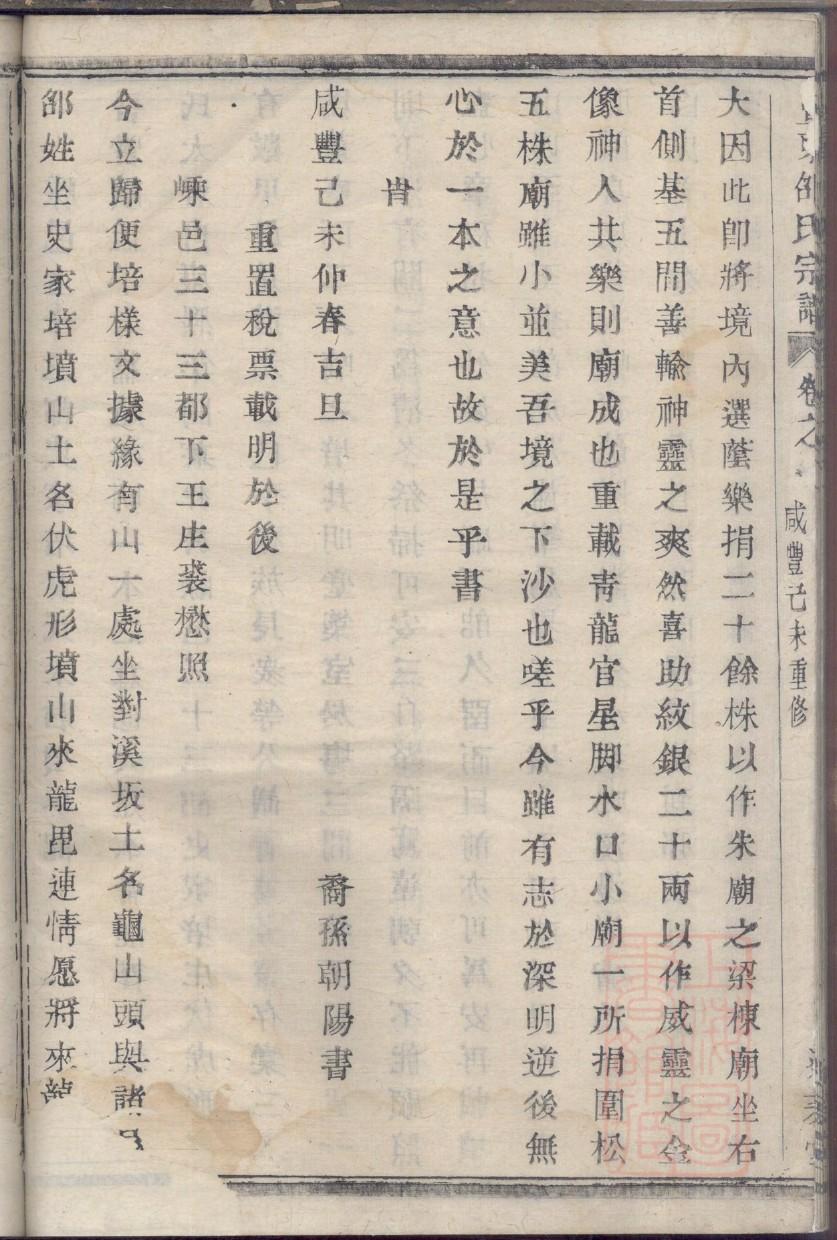 邵氏宗譜 卷之 咸豐己未重修
大因此卽將境內選蔭樂捐二十餘株以作朱廟之梁棟廟坐右
首側基五間善輸神靈之爽然喜助紋銀二十兩以作威靈之金
像神人共樂則廟成也重載靑龍官星脚水口小廟一所捐圍松
五株廟雖小並美吾境之下沙也嗟乎今雖有志於深明逆後無
心於一本之意也故於是乎書
旹
咸豐己未仲春吉旦 裔孫朝陽書
重置稅票載明於後
嵊邑三十三都下王庄裘懋照
今立歸便培樣文據緣有山一處坐對溪坂土名龜山頭與諸
邵姓坐史家培墳山土名伏虎形墳山來龍毘連情愿將來龍